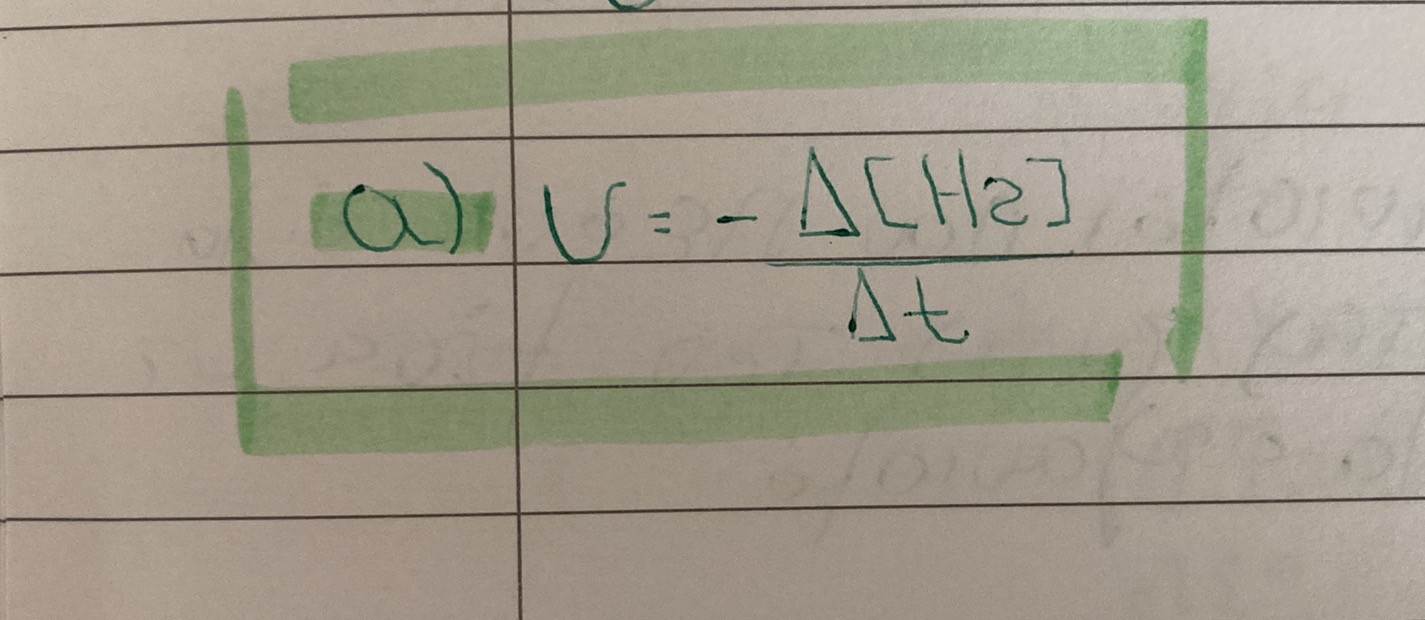 a) v = - Δ[H2] / Δt